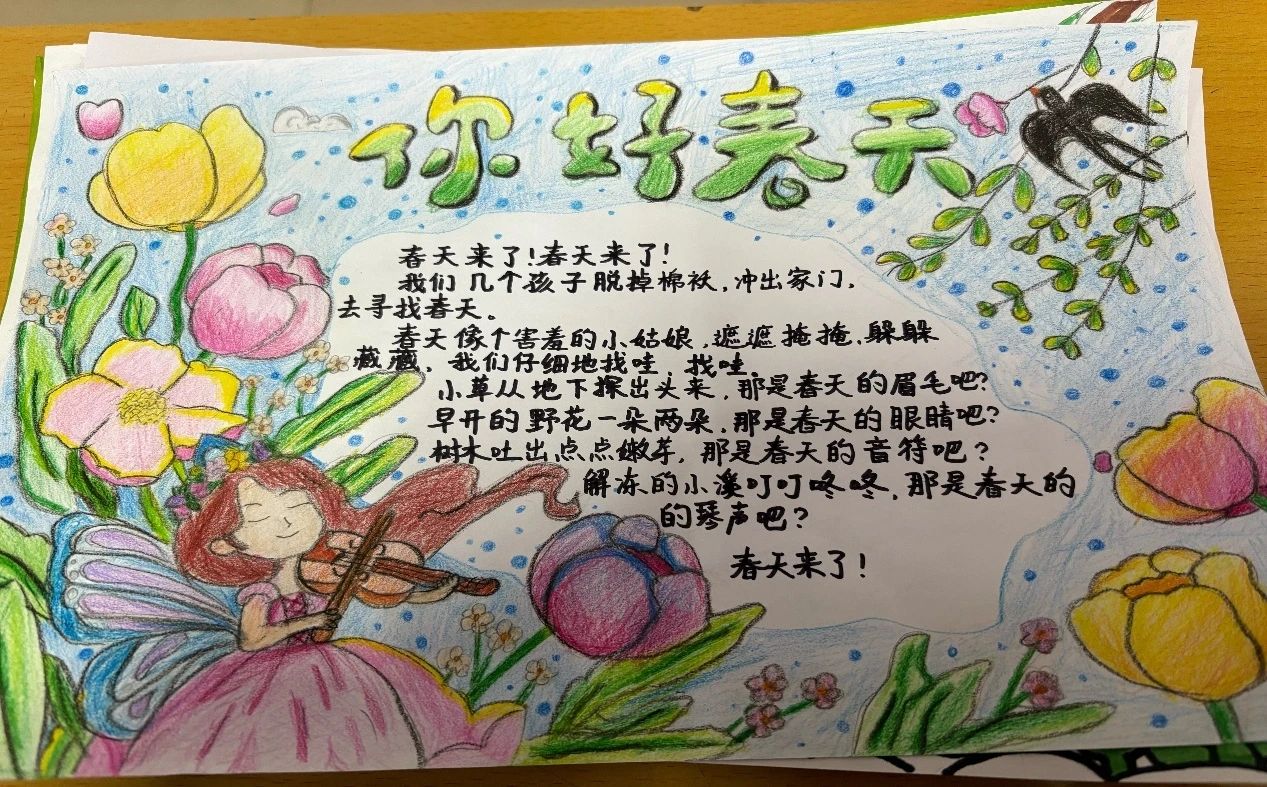 你好春天
春天来了!春天来了!
我们几个孩子脱掉棉袄,冲出家门,
去寻找春天。
春天像个害羞的小姑娘,遮遮掩掩,躲躲
藏藏,我们仔细地找哇,找哇。
小草从地下探出头来,那是春天的眉毛吧?
早开的野花一朵两朵,那是春天的眼睛吧?
树木吐出点点嫩芽,那是春天的音符吧?
解冻的小溪叮叮咚咚,那是春天的
的琴声吧?
春天来了!